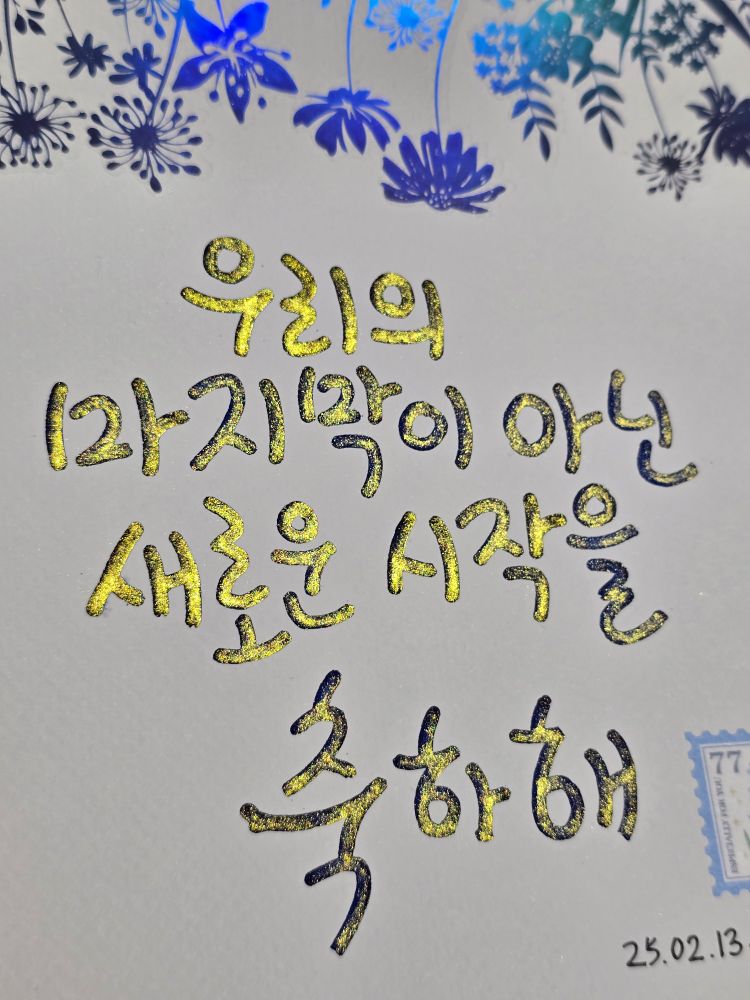 우리의
마지막이 아닌
새로운 시작을
축하해
77
ESPECIALLY FOR YOU
25.02.13.